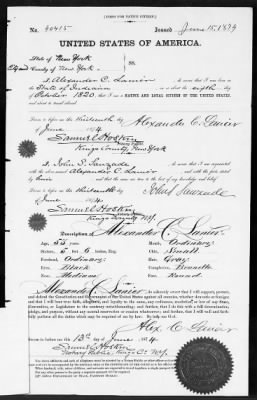 [FORM FOR NATIVE CITIZEN.]
No. 40415 Issued June 15, 1874
UNITED STATES OF AMERICA.
State of New York
City and County of New York
ss.
I, Alexander C. Lanier, do swear that I was born in
the State of Indiana, on or about the eighth day of
October 1820, that I am a NATIVE AND LOYAL CITIZEN OF THE UNITED STATES,
and about to travel abroad.
Sworn to before me this thirteenth day
of June 1874
Alexander C. Lanier
Samuel Hoskin
Kings County, New York
I, John S. Sauzade, do swear that I am acquainted
with the above-named Alexander C. Lanier
Sworn to before me this thirteenth day
of June 1874
John S. Sauzade
Samuel Hoskin
Kings County N.Y.
Description of Alexander C. Lanier.
Age, 53 years. Mouth, Ordinary
Stature, 5 feet 6 inches, Eng. Chin, Small
Forehead, Ordinary Hair, Gray
Eyes, Black Complexion, Brunette
Nose, Medium Face, Round
I, Alexander C. Lanier, do solemnly swear that I will support, protect,
and defend the Constitution and Government of the United States against all enemies, whether domestic or foreign;
and that I will bear true faith, allegiance, and loyalty to the same, any ordinance, resolution, or law of any State,
Convention, or Legislature to the contrary notwithstanding; and further, that I do this with a full determination,
pledge, and purpose, without any mental reservation or evasion whatsoever; and further, that I will well and faithfully
perform all the duties which may be required of me by law. So help me God.
Alex. C Lanier
Sworn to before me this 13th day of June 1874
Samuel Hoskin
Notary Public, Kings Co. N.Y.